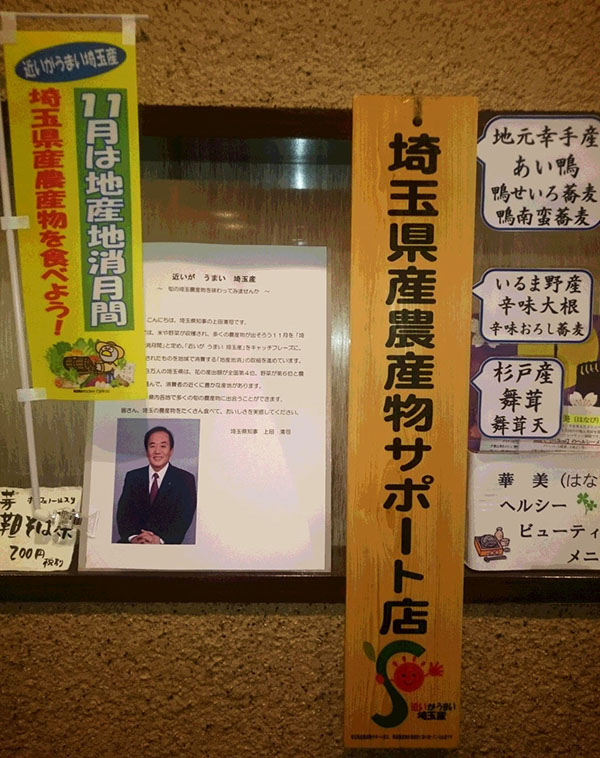 近いがうまい埼玉産
11月は地産地消月間
埼玉県産農産物を食べよう!
近いが うまい 埼玉産
~ 旬の埼玉農産物を味わってみませんか ~
こんにちは、埼玉県知事の上田清司です。
は、米や野菜が収穫され、多くの農産物が出そろう11月を「地
消月間」と定め、「近いが うまい 埼玉産」をキャッチフレーズに、
されたものを地域で消費する「地産地消」の取組を進めています。
万人の埼玉県は、花の産出額が全国第4位、野菜が第6位と農
んで、消費者の近くに豊かな産地があります。
県内各地で多くの旬の農産物に出会うことができます。
皆さん、埼玉の農産物をたくさん食べて、おいしさを実感してください。
埼玉県知事 上田 清司
そば茶
200円
埼玉県産農産物サポート店
近いがうまい
埼玉産
地元幸手産
あい鴨
鴨せいろ蕎麦
鴨南蛮蕎麦
いるま野産
辛味大根
辛味おろし蕎麦
杉戸産
舞茸
舞茸天
華 美 (はな
ヘルシー
ビューティ
メニ